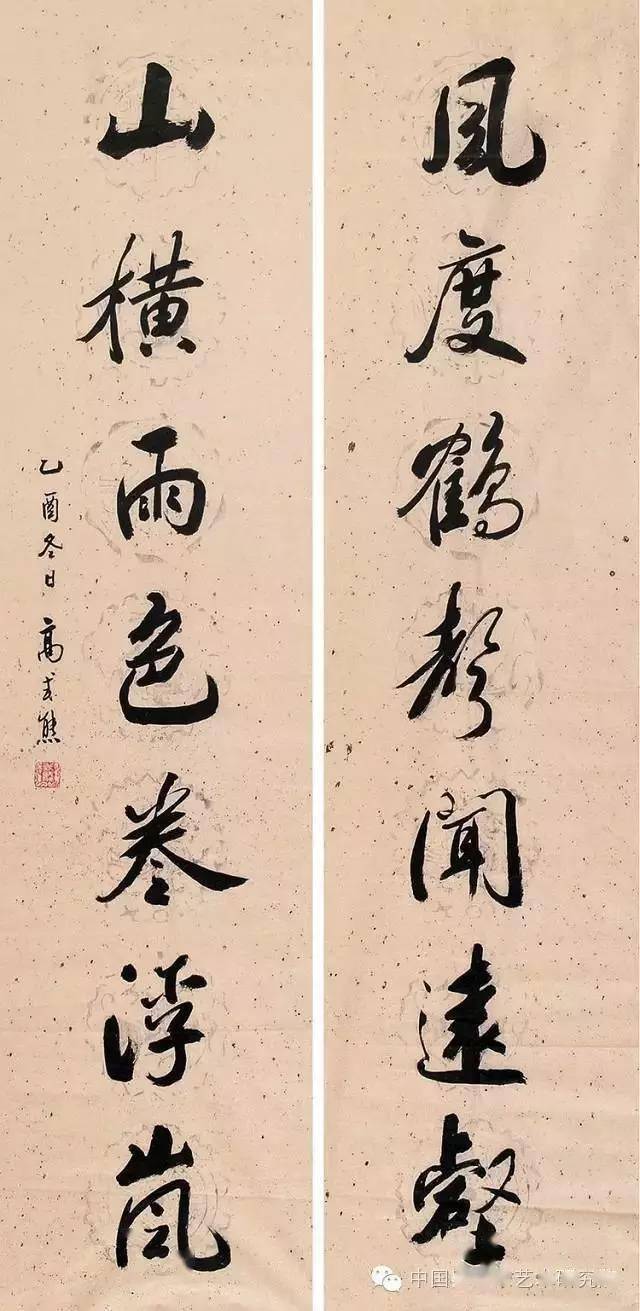 風度鶴聲聞遠壑
山橫雨色卷浮嵐
乙酉冬日 高式熊
中国 艺 研究